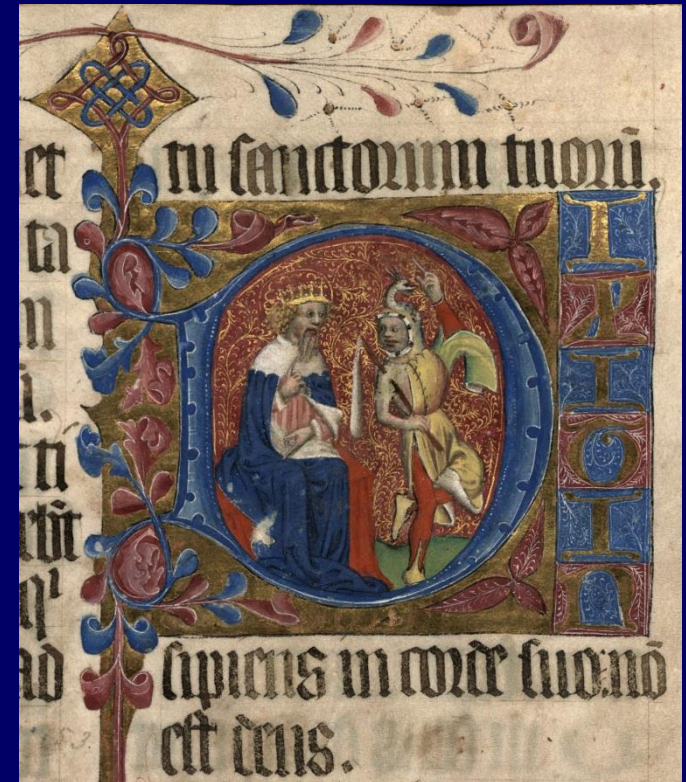 et
ta
ti
ad
tu sanctorum tuorū.
DIXIT IN
sipiens in corde suo:nō
est deus.